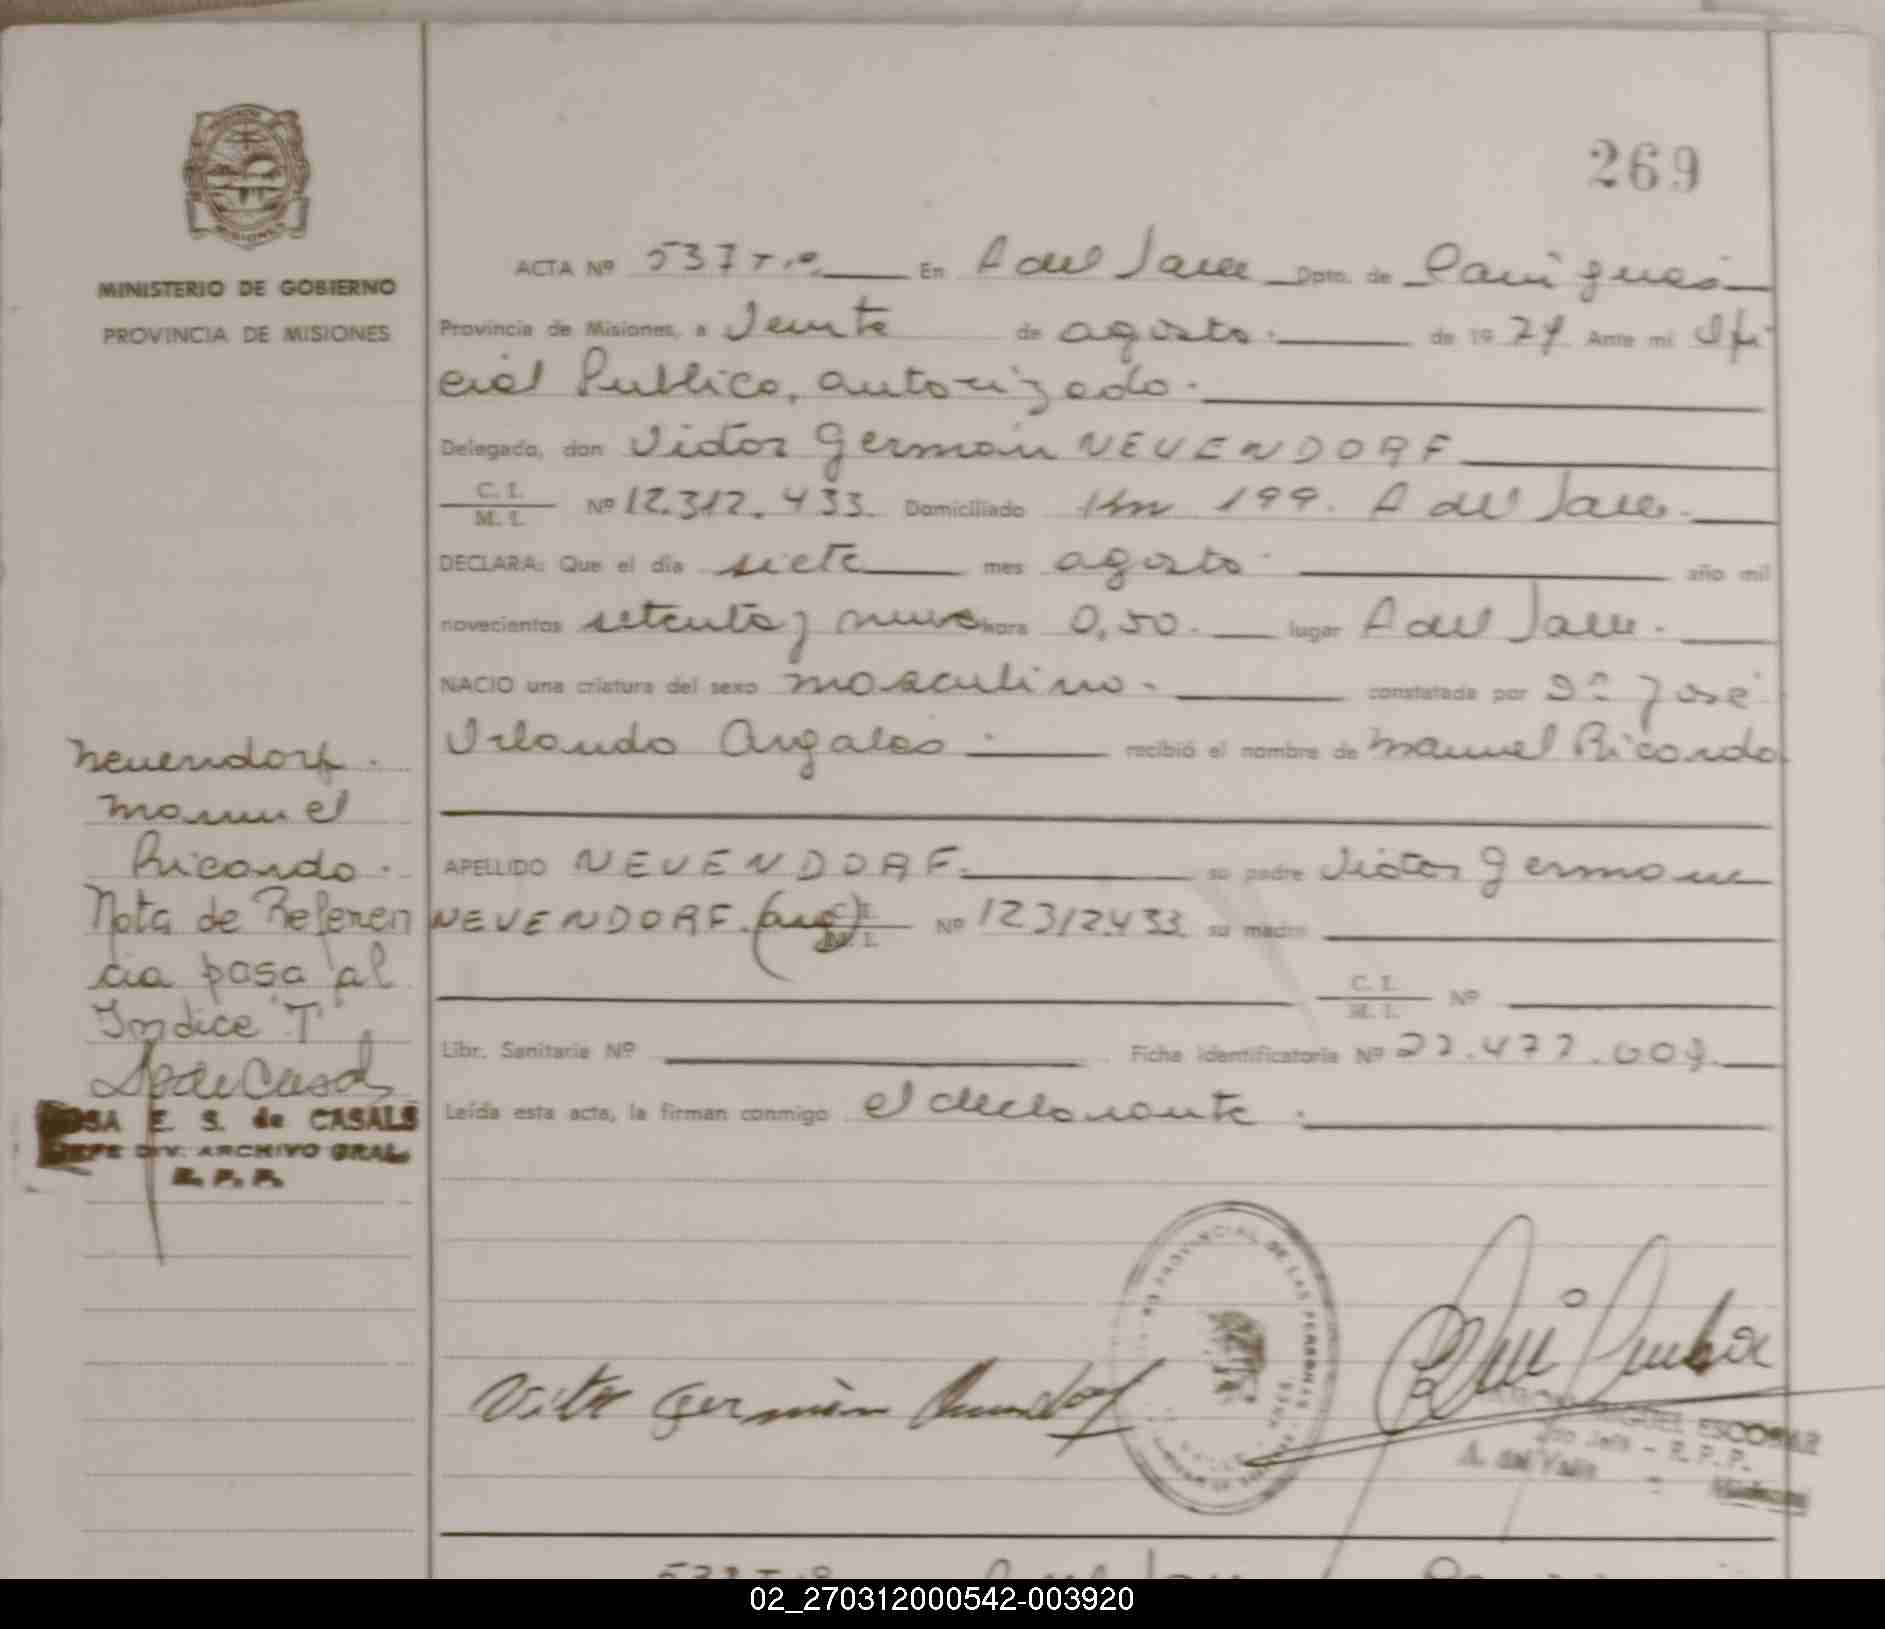 269
MINISTERIO DE GOBIERNO
PROVINCIA DE MISIONES
ACTA Nº 537 T.º En A del Valle Dpto. de Cainguás
Provincia de Misiones, a Veinte de agosto. de 1979 Ante mi Ofi
cial Publico, autorizado.
Delegado, don Victor Germán NEUENDORF
C. I.
M. I. Nº 12.312.433. Domiciliado Km 199. A del Valle.
DECLARA: Que el día siete mes agosto año mil
novecientos setenta y nueve hora 0,50. lugar A del Valle.
NACIO una criatura del sexo masculino. constatada por Dn José
Orlando Argales recibió el nombre de Manuel Ricardo
APELLIDO NEUENDORF. su padre Victor Germán
NEUENDORF. (arg) C. I. M. I. Nº 12312433. su madre
C. I.
M. I. Nº
Libr. Sanitaria Nº Ficha Identificatoria Nº 27.477.009.
Leída esta acta, la firman conmigo el declarante.
Neuendorf.
Manuel
Ricardo.
Nota de Referen
cia pasa al
Indice "T"
ROSA E. S. de CASALS
JEFE DIV. ARCHIVO GRAL.
R. P. P.
Victor Germán Neuendorf
MIGUEL ESCOBAR
Jefe - R. P. P.
A. del Valle - Misiones
02_270312000542-003920